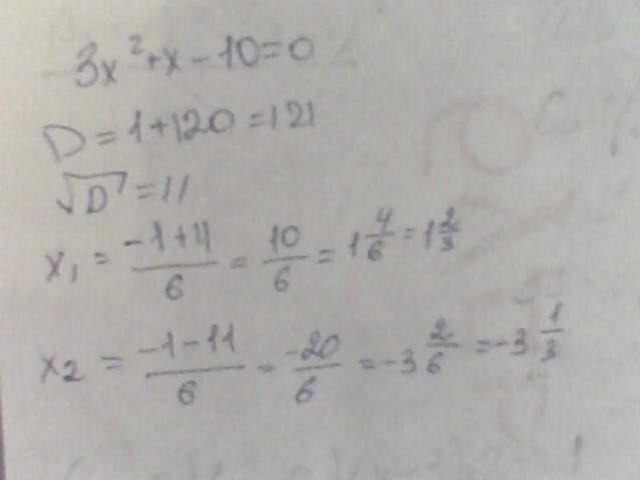 3x²+x-10=0
D=1+120=121
√D=11
x₁ = (-1+11)/6 = 10/6 = 1 4/6 = 1 2/3
x₂ = (-1-11)/6 = -20/6 = -3 2/6 = -3 1/3